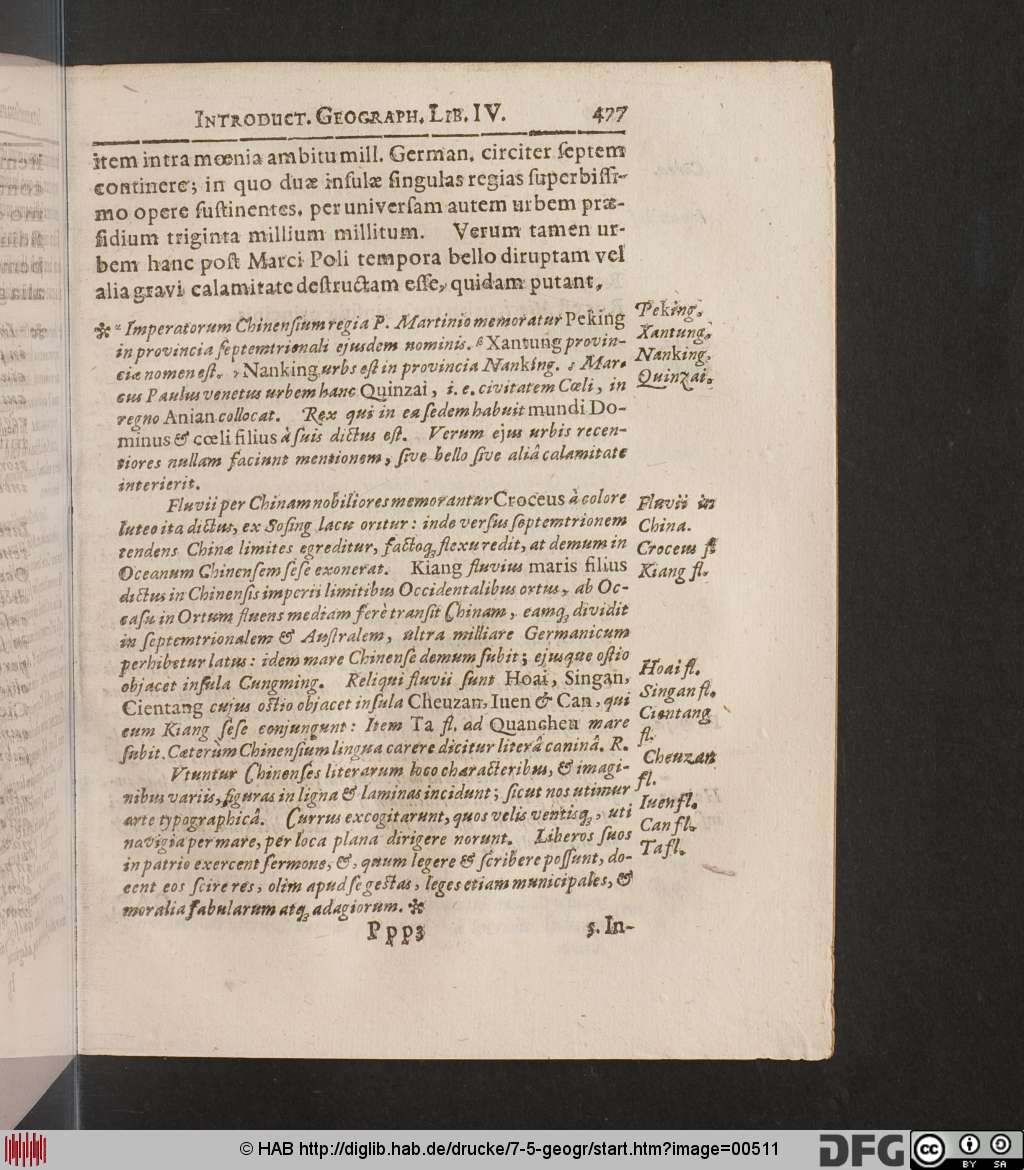 INTRODUCT. GEOGRAPH. LIB. IV. 477
item intra mœnia ambitu mill. German. circiter ſeptem
continere; in quo duæ inſulæ ſingulas regias ſuperbiſſi-
mo opere ſuſtinentes, per univerſam autem urbem præ-
ſidium triginta millium militum. Verum tamen ur-
bem hanc poſt Marci Poli tempora bello diruptam vel
alia gravi calamitate deſtructam eſſe, quidam putant,
✻ α Imperatorum Chinenſium regia P. Martinio memoratur Peking
in provincia ſeptemtrionali ejuſdem nominis. β Xantung provin-
ciæ nomen eſt. γ Nanking urbs eſt in provincia Nanking. δ Mar-
cus Paulus venetus urbem hanc Quinzai, i. e. civitatem Cœli, in
regno Anian collocat. Rex qui in ea ſedem habuit mundi Do-
minus & cœli filius à ſuis dictus eſt. Verum ejus urbis recen-
tiores nullam faciunt mentionem, ſive bello ſive aliâ calamitate
interierit.
Fluvii per Chinam nobiliores memorantur Croceus à colore
luteo ita dictus, ex Soſing lacu oritur: inde verſus ſeptemtrionem
tendens Chinæ limites egreditur, factoq; flexu redit, at demum in
Oceanum Chinenſem ſeſe exonerat. Kiang fluvius maris filius
dictus in Chinenſis imperii limitibus Occidentalibus ortus, ab Oc-
caſu in Ortum fluens mediam ferè tranſit Chinam, eamq; dividit
in ſeptemtrionalem & Auſtralem, ultra milliare Germanicum
perhibetur latus: idem mare Chinenſe demum ſubit; ejusque oſtio
objacet inſula Cungming. Reliqui fluvii ſunt Hoai, Singan,
Cientang cujus oſtio objacet inſula Cheuzan, Iuen & Can, qui
cum Kiang ſeſe conjungunt: Item Ta fl. ad Quancheu mare
ſubit. Cæterùm Chinenſium lingua carere dicitur literâ caninâ. R.
Vtuntur Chinenſes literarum loco characteribus, & imagi-
nibus variis, figuras in ligna & laminas incidunt; ſicut nos utimur
arte typographicâ. Currus excogitarunt, quos velis ventisq; , uti
navigia per mare, per loca plana dirigere norunt. Liberos ſuos
in patrio exercent ſermone, &, quum legere & ſcribere poſſunt, do-
cent eos ſcire res, olim apud ſe geſtas, leges etiam municipales, &
moralia fabularum atq; adagiorum. ✻
Pppp3 5. In-
Peking.
Xantung.
Nanking.
Quinzai.
Fluvii in
China.
Croceus fl
Kiang fl.
Hoai fl.
Singan fl.
Cientang
fl.
Cheuzan
fl.
Iuen fl.
Can fl.
Ta fl.
© HAB http://diglib.hab.de/drucke/7-5-geogr/start.htm?image=00511
DFG
cc
BY SA